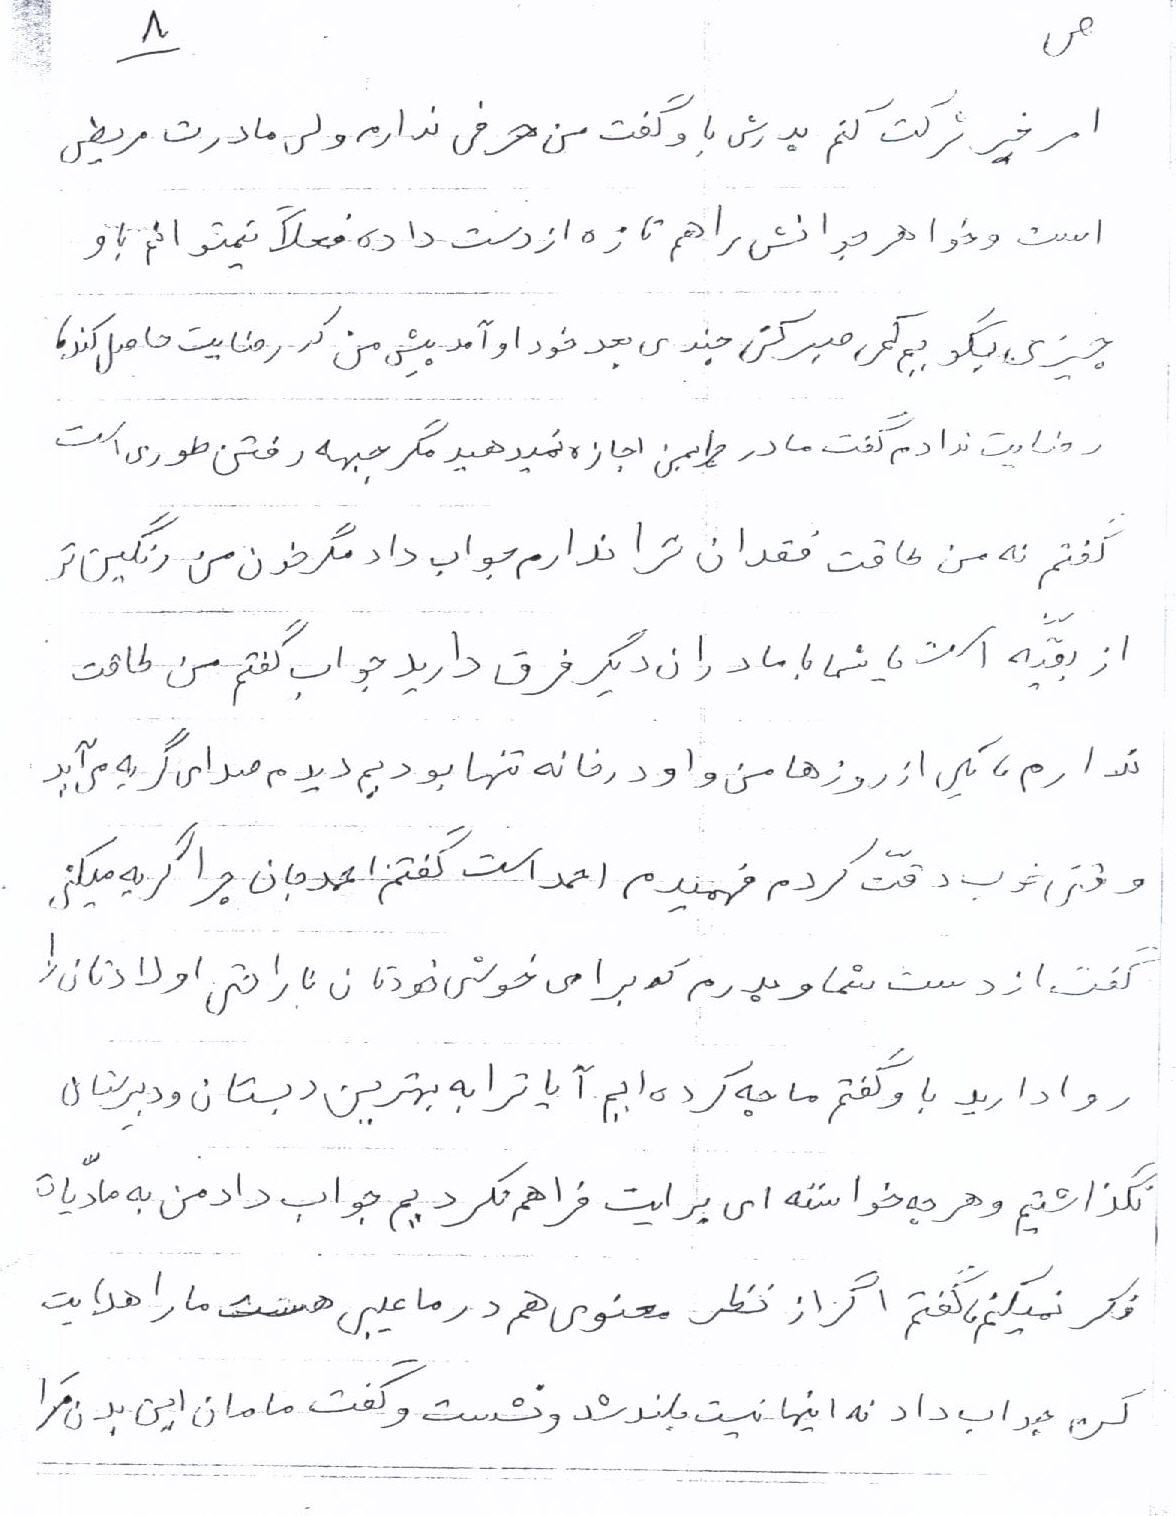 ص ۸
امر خیر شرکت کنم پدرش باو گفت من حرفی ندارم ولی مادرت مریض
است و خواهر جوانش را هم تازه از دست داده فعلاً نمیتوانم باو
چیزی بگویم کمی صبر کن چندی بعد خود او آمد پیش من که رضایت حاصل کند،
رضایت ندادم گفت مادر چرا بمن اجازه نمیدهید مگر جبهه رفتن طوری است
گفتم نه من طاقت فقدان ترا ندارم جواب داد مگر خون من رنگین تر
از بقیّه است یا شما با مادران دیگر فرق دارید جواب گفتم من طاقت
ندارم، یکی از روزها من و او در خانه تنها بودیم دیدم صدای گریه می آید
وقتی خوب دقّت کردم فهمیدم احمد است گفتم احمد جان چرا گریه میکنی
گفت از دست شما و پدرم که برای خوشی خودتان ناراحتی اولادتان را
روا دارید باو گفتم ما چه کرده ایم آیا ترا به بهترین دبستان و دبیرستان
نگذاشتیم و هر چه خواسته ای برایت فراهم نکردیم جواب داد من به مادّیات
فکر نمیکنم، گفتم اگر از نظر معنوی هم در ما عیبی هست ما را هدایت
کن، جواب داد نه اینها نیست بلند شد و نشست و گفت مامان این بدن مرا